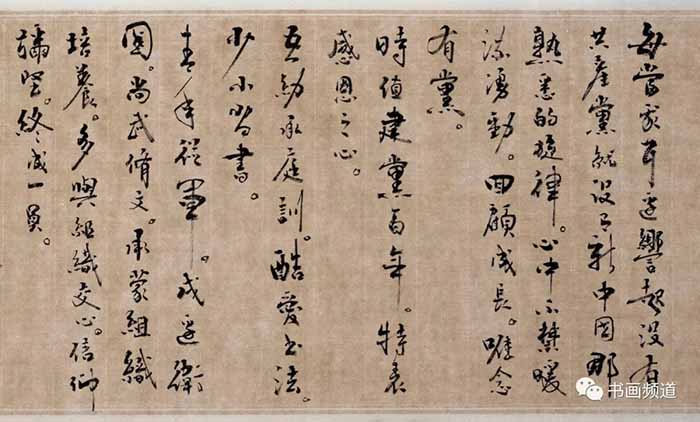 每當我耳邊響起沒有
共產黨就沒有新中国那
熟悉的旋律。心中不禁暖
流湧動。回顧成長。唯念
有黨。
時值建黨百年。特表
感恩之心。
幼承庭訓。酷愛书法。
少小習書。
青年從軍。戍邊衛
國。尚武脩文。承蒙組織
培養。多與組織交心。信仰
彌堅。終成一員。
书画频道